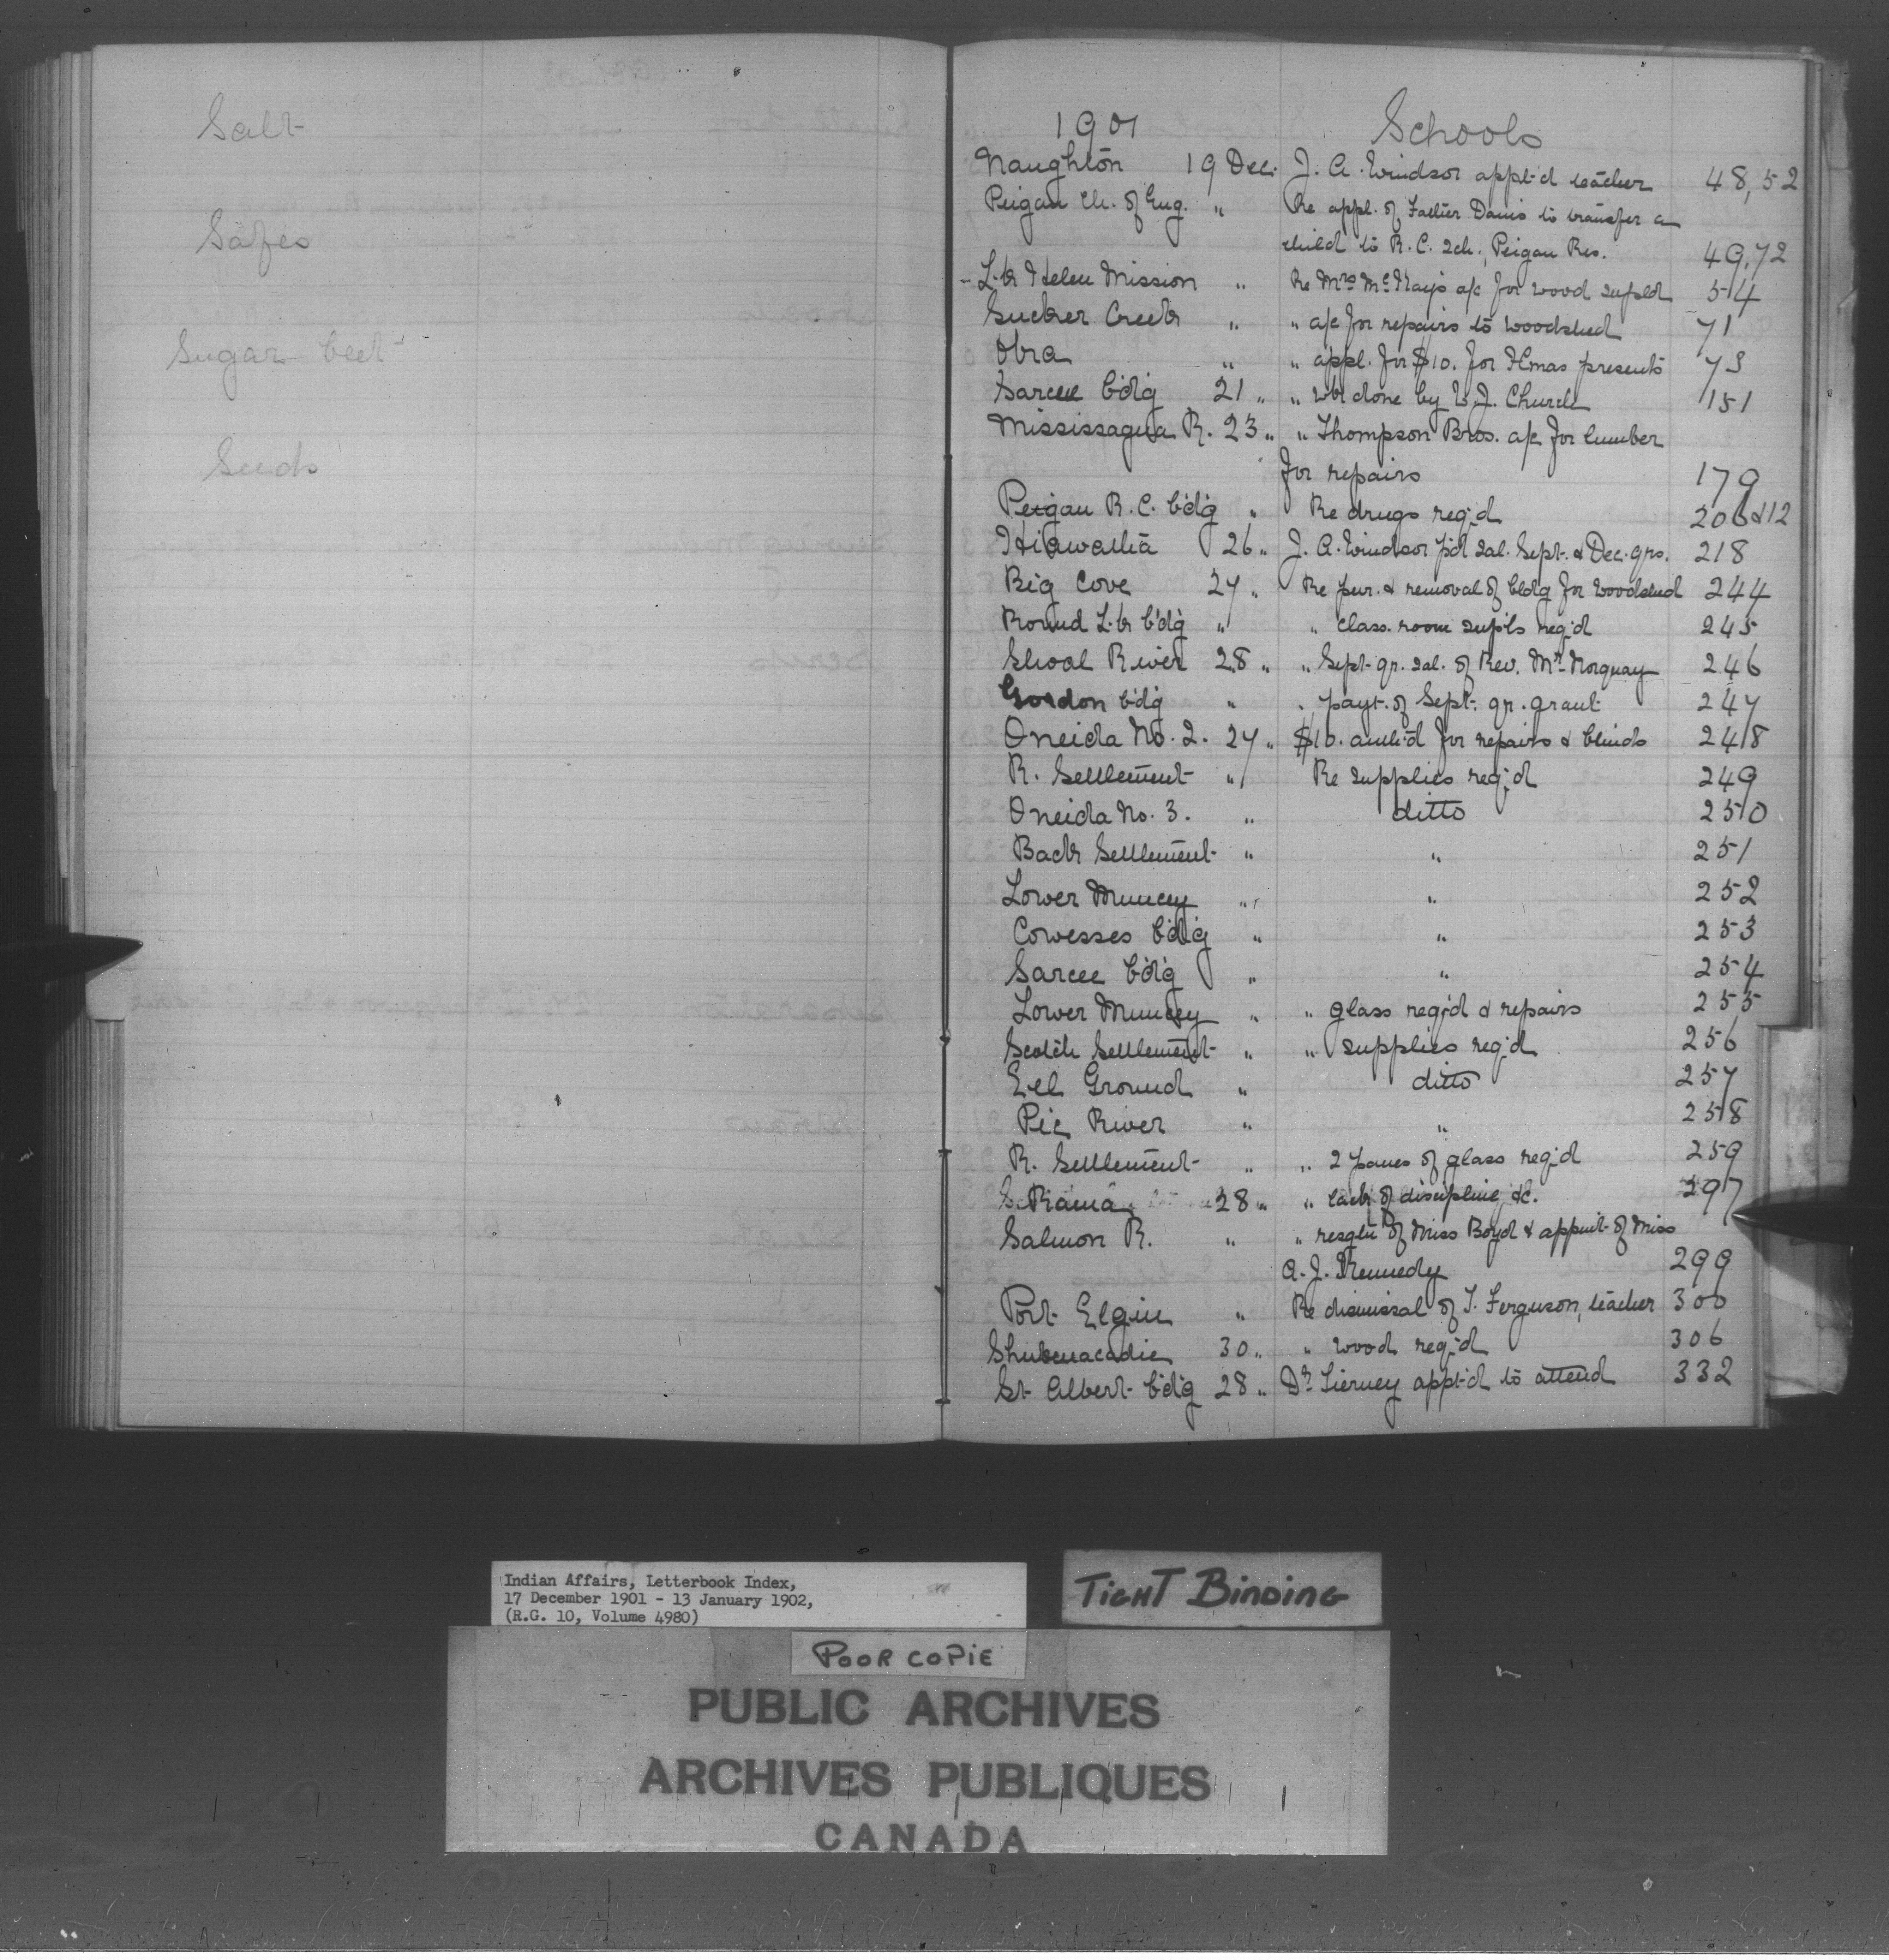 Salt
Safes
Sugar beet
Seeds
1901 Schools
Naughton 19 Dec. J. A. Windsor appt'd teacher 48, 52
Peigan Ch. of Eng. " Re appl. of Father Danis to transfer a
child to R. C. Sch., Peigan Res. 49, 72
Lk Helen Mission " Re Mrs McKay's a/c for wood suppld 54
Sucker Creek " " a/c for repairs to woodshed 71
Obra " " appl. for $10. for Xmas presents 73
Sarcee b'd'g 21 " " wk done by W. J. Church 151
Mississagua R. 23 " " Thompson Bros. a/c for lumber
for repairs 179
Peigan R. C. b'd'g " Re drugs req'd
Hiawatha 26 " J. A. Windsor p'd sal. Sept. & Dec. qrs. 218
Big Cove 27 " Re pur. & removal of bldg for woodshed 244
Round Lk b'd'g " " class. room sup'ls req'd 245
Shoal River 28 " " Sept. qr. sal. of Rev. Mr. Norquay 246
Gordon b'd'g " " payt. of Sept. qr. grant 247
Oneida No. 2. 27 " $10. auth'd for repairs & blinds 248
R. Settlement " Re supplies req'd 249
Oneida No. 3. " ditto 250
Back Settlement " " 251
Lower Muncey " " 252
Cowesses b'd'g " " 253
Sarcee b'd'g " " 254
Lower Muncey " " glass req'd & repairs 255
Scotch Settlement " " supplies req'd 256
Eel Ground " ditto 257
Pic River " " 258
R. Settlement " " 2 panes of glass req'd 259
Rama 28 " " lack of discipline, &c. 297
Salmon R. " " resgtn of Miss Boyd & appmt. of Miss
A. J. Kennedy 299
Port Elgin " Re dismissal of T. Ferguson, teacher 300
Shubenacadie 30 " " wood req'd 306
St Albert b'd'g 28 " Dr. Tierney appt'd to attend 332
Indian Affairs, Letterbook Index,
17 December 1901 - 13 January 1902,
(R.G. 10, Volume 4980)
TIGHT BINDING
POOR COPIE
PUBLIC ARCHIVES
ARCHIVES PUBLIQUES
CANADA